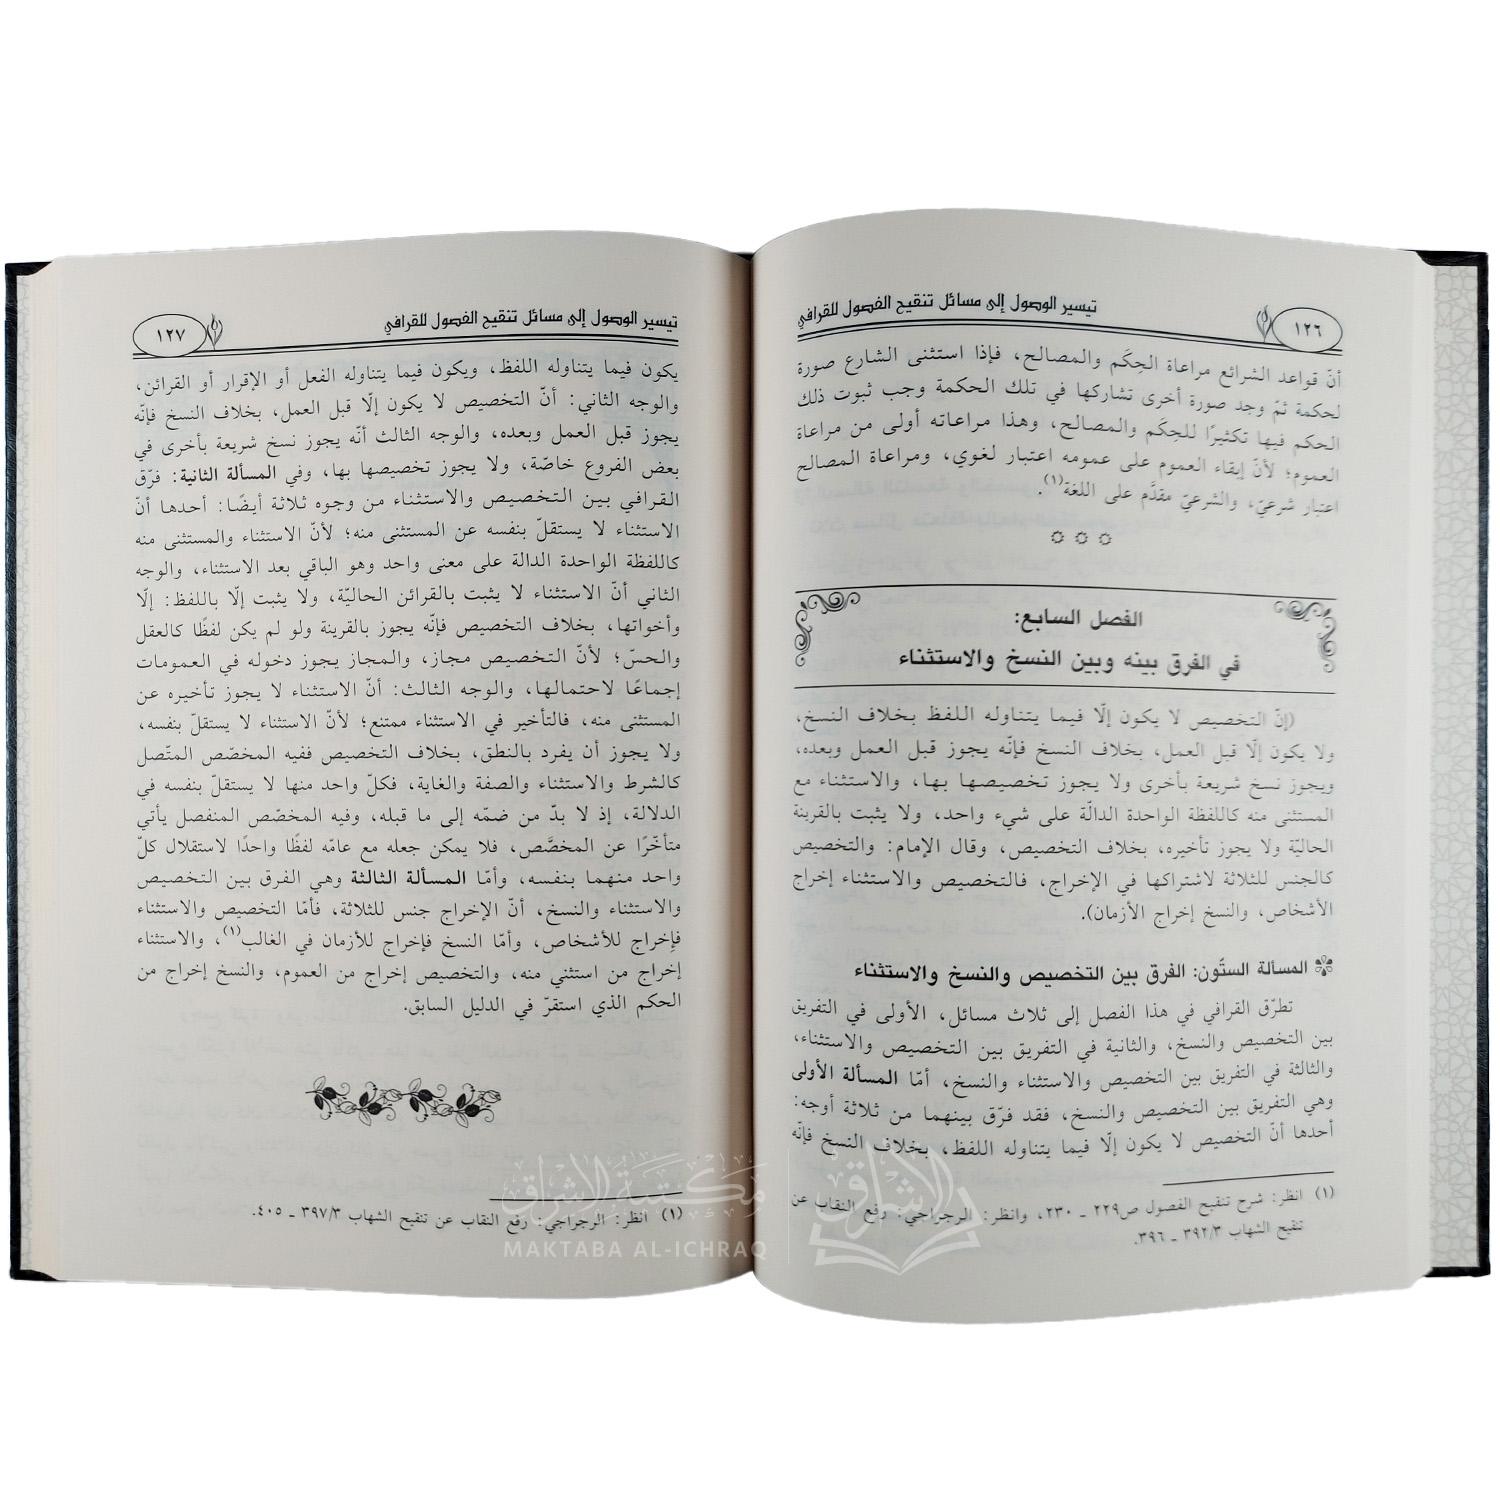 تيسير الوصول إلى مسائل تنقيح الفصول للقرافي
١٢٦
أنّ قواعد الشرائع مراعاة الحِكَم والمصالح، فإذا استثنى الشارع صورة
لحكمة ثمّ وجد صورة أخرى تشاركها في تلك الحكمة وجب ثبوت ذلك
الحكم فيها تكثيرًا للحِكَم والمصالح، وهذا مراعاته أولى من مراعاة
العموم؛ لأنّ إبقاء العموم على عمومه اعتبار لغوي، ومراعاة المصالح
اعتبار شرعيّ، والشرعيّ مقدَّم على اللغة(١).
الفصل السابع:
في الفرق بينه وبين النسخ والاستثناء
(إنّ التخصيص لا يكون إلّا فيما يتناوله اللفظ بخلاف النسخ،
ولا يكون إلّا قبل العمل، بخلاف النسخ فإنّه يجوز قبل العمل وبعده،
ويجوز نسخ شريعة بأخرى ولا يجوز تخصيصها بها، والاستثناء مع
المستثنى منه كاللفظة الواحدة الدالّة على شيء واحد، ولا يثبت بالقرينة
الحاليّة ولا يجوز تأخيره، بخلاف التخصيص، وقال الإمام: والتخصيص
كالجنس للثلاثة لاشتراكها في الإخراج، فالتخصيص والاستثناء إخراج
الأشخاص، والنسخ إخراج الأزمان).
المسألة الستّون: الفرق بين التخصيص والنسخ والاستثناء
تطرّق القرافي في هذا الفصل إلى ثلاث مسائل، الأولى في التفريق
بين التخصيص والنسخ، والثانية في التفريق بين التخصيص والاستثناء،
والثالثة في التفريق بين التخصيص والاستثناء والنسخ، أمّا المسألة الأولى
وهي التفريق بين التخصيص والنسخ، فقد فرّق بينهما من ثلاثة أوجه:
أحدها أنّ التخصيص لا يكون إلّا فيما يتناوله اللفظ، بخلاف النسخ فإنّه
(١) انظر: شرح تنقيح الفصول ص٢٢٩ ـ ٢٣٠، وانظر: الرجراجي: رفع النقاب عن
تنقيح الشهاب ٣٩٢/٣ ـ ٣٩٦.
تيسير الوصول إلى مسائل تنقيح الفصول للقرافي
١٢٧
يكون فيما يتناوله اللفظ، ويكون فيما يتناوله الفعل أو الإقرار أو القرائن،
والوجه الثاني: أنّ التخصيص لا يكون إلّا قبل العمل، بخلاف النسخ فإنّه
يجوز قبل العمل وبعده، والوجه الثالث أنّه يجوز نسخ شريعة بأخرى في
بعض الفروع خاصّة، ولا يجوز تخصيصها بها، وفي المسألة الثانية: فرّق
القرافي بين التخصيص والاستثناء من وجوه ثلاثة أيضًا: أحدها أنّ
الاستثناء لا يستقلّ بنفسه عن المستثنى منه؛ لأنّ الاستثناء والمستثنى منه
كاللفظة الواحدة الدالة على معنى واحد وهو الباقي بعد الاستثناء، والوجه
الثاني أنّ الاستثناء لا يثبت بالقرائن الحاليّة، ولا يثبت إلّا باللفظ: إلّا
وأخواتها، بخلاف التخصيص فإنّه يجوز بالقرينة ولو لم يكن لفظًا كالعقل
والحسّ؛ لأنّ التخصيص مجاز، والمجاز يجوز دخوله في العمومات
إجماعًا لاحتمالها، والوجه الثالث: أنّ الاستثناء لا يجوز تأخيره عن
المستثنى منه، فالتأخير في الاستثناء ممتنع؛ لأنّ الاستثناء لا يستقلّ بنفسه،
ولا يجوز أن يفرد بالنطق، بخلاف التخصيص ففيه المخصّص المتّصل
كالشرط والاستثناء والصفة والغاية، فكلّ واحد منها لا يستقلّ بنفسه في
الدلالة، إذ لا بدّ من ضمّه إلى ما قبله، وفيه المخصّص المنفصل يأتي
متأخّرًا عن المخصَّص، فلا يمكن جعله مع عامّه لفظًا واحدًا لاستقلال كلّ
واحد منهما بنفسه، وأمّا المسألة الثالثة وهي الفرق بين التخصيص
والاستثناء والنسخ، أنّ الإخراج جنس للثلاثة، فأمّا التخصيص والاستثناء
فإخراج للأشخاص، وأمّا النسخ فإخراج للأزمان في الغالب(١)، والاستثناء
إخراج من استثني منه، والتخصيص إخراج من العموم، والنسخ إخراج من
الحكم الذي استقرّ في الدليل السابق.
(١) انظر: الرجراجي: رفع النقاب عن تنقيح الشهاب ٣٩٧/٣ ـ ٤٠٥.
مكتبة الإشراق
MAKTABA AL-ICHRAQ
الإشراق